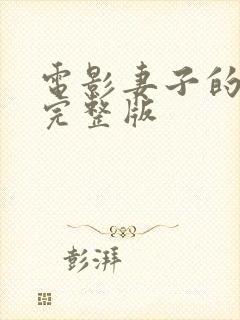 電影妻子的
完整版
彭湃